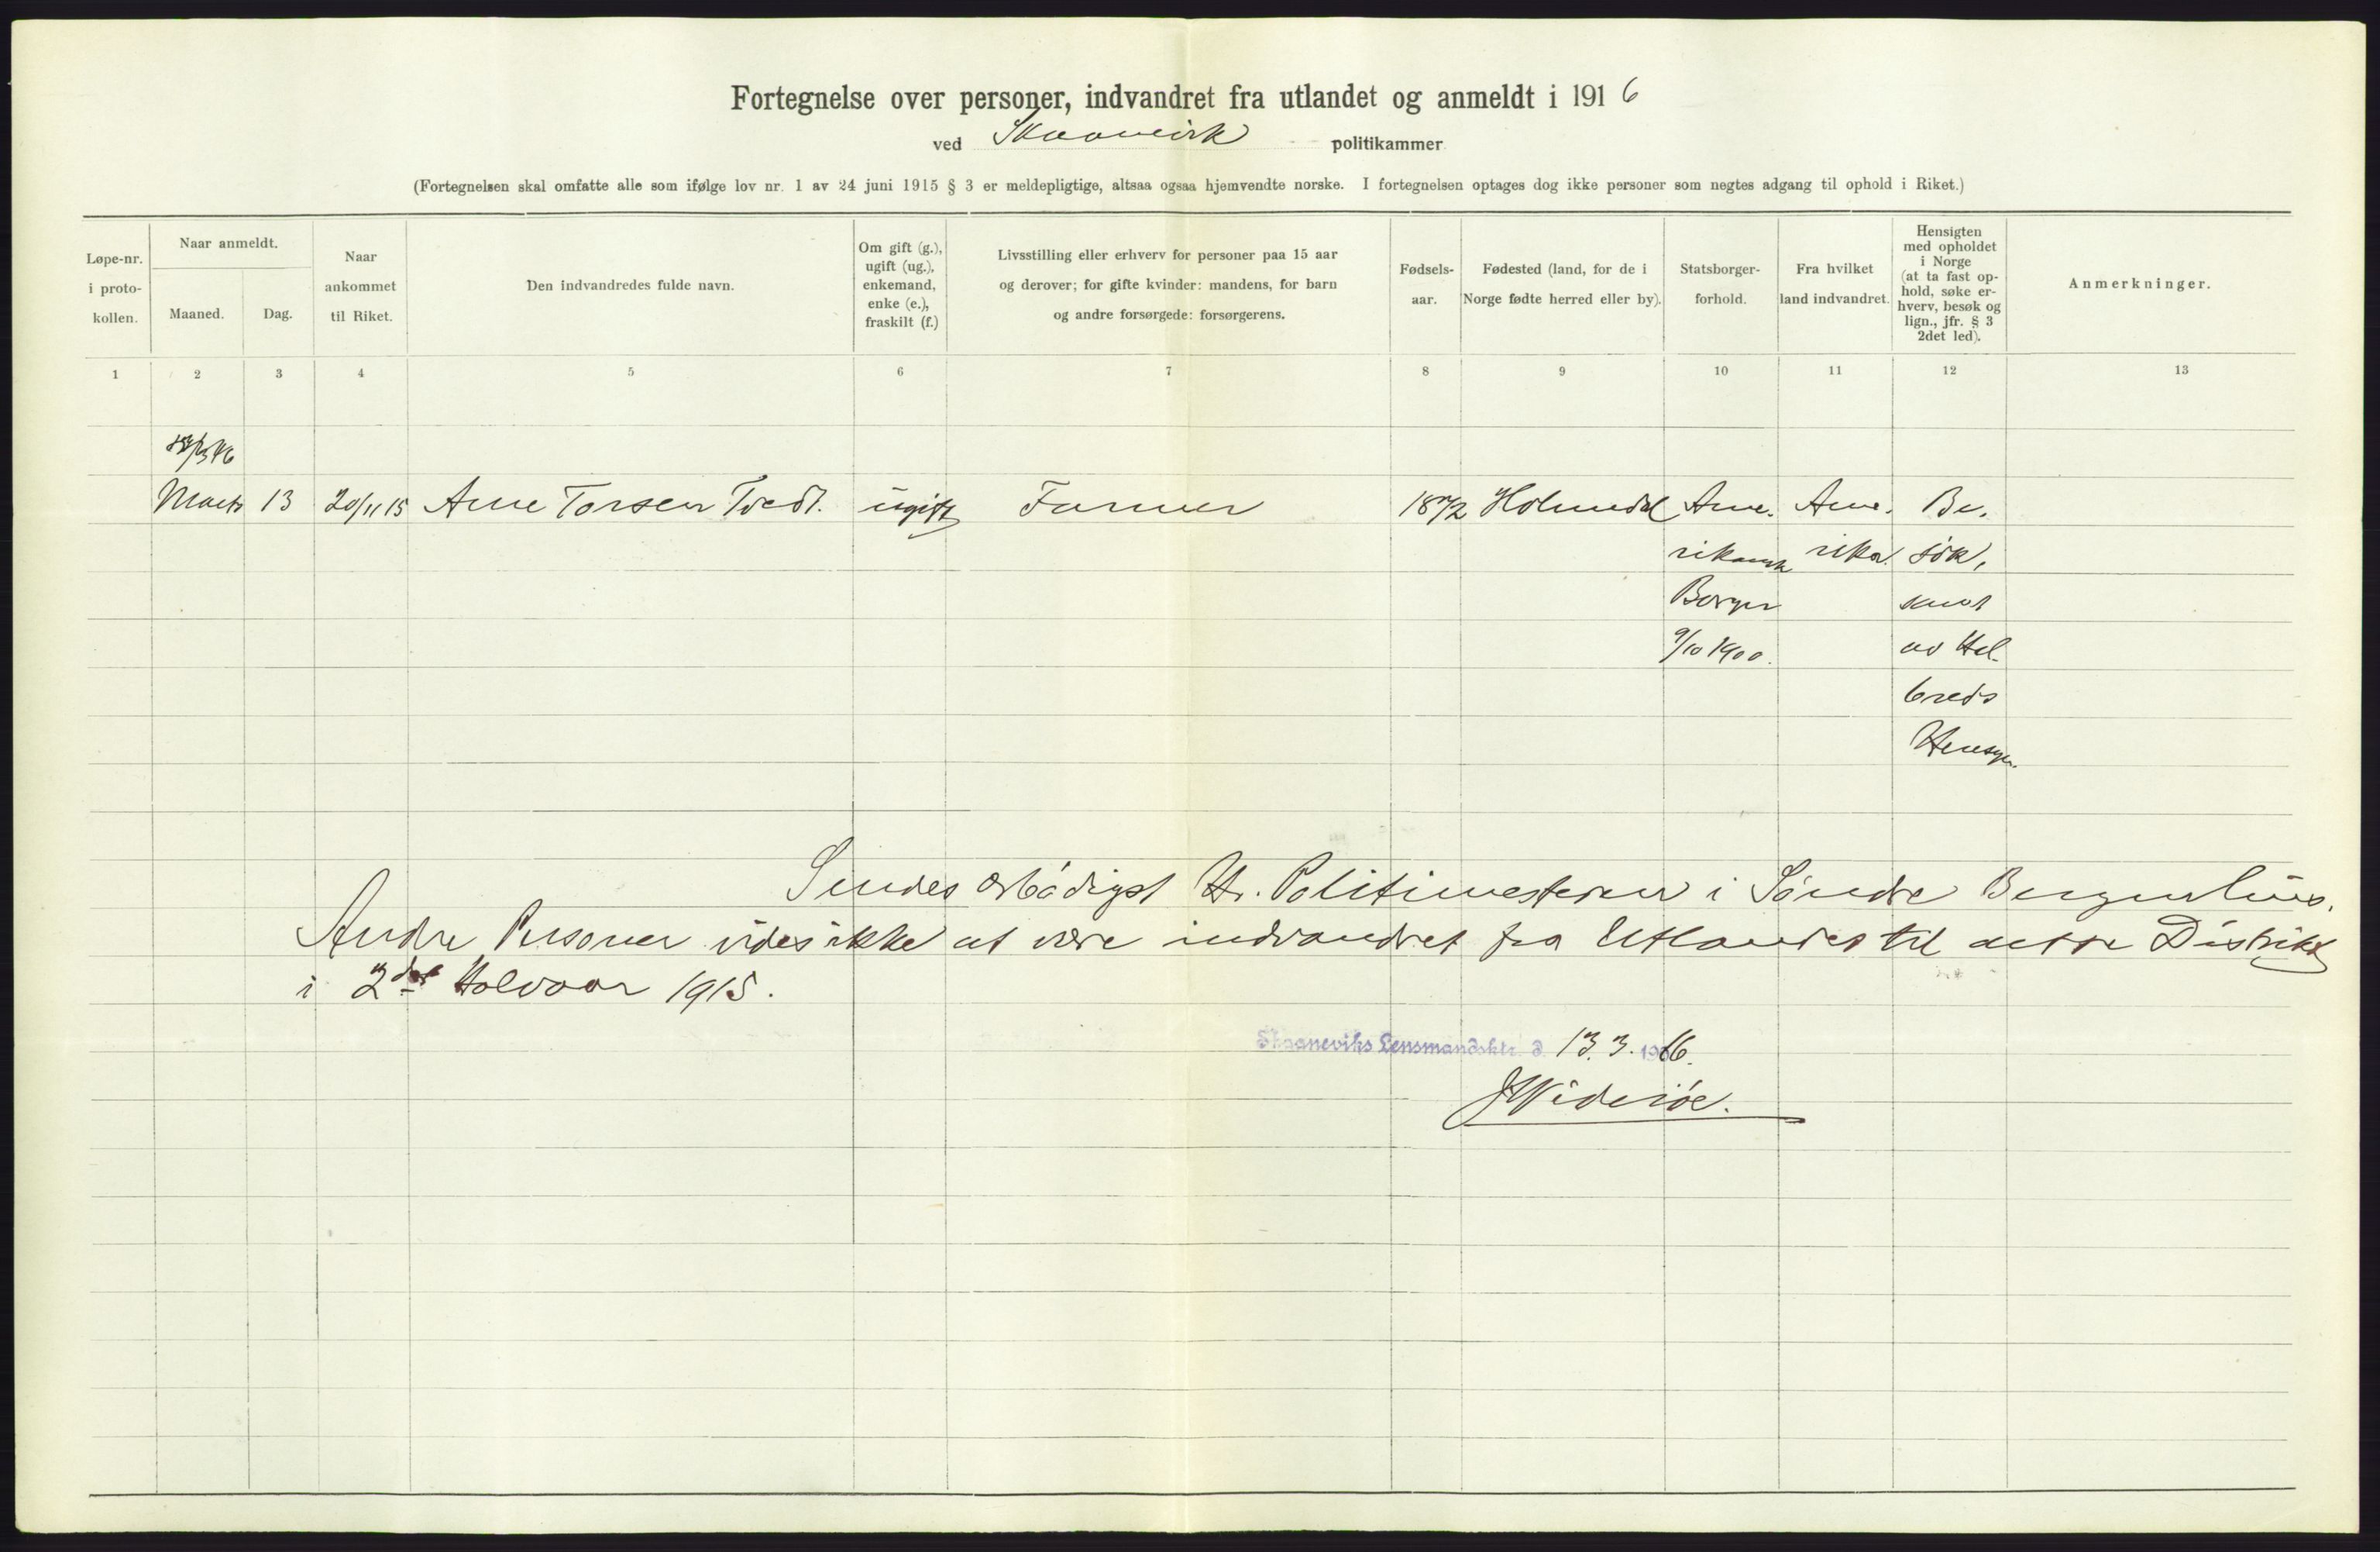 Fortegnelse over personer, indvandret fra utlandet og anmeldt i 1916
ved Skaanevik politikammer
(Fortegnelsen skal omfatte alle som ifølge lov nr. 1 av 24 juni 1915 § 3 er meldepligtige, altsaa ogsaa hjemvendte norske. I fortegnelsen optages dog ikke personer som negtes adgang til ophold i Riket.)
Løpe-nr.
i proto-
kollen.
Naar anmeldt.
Maaned.
Dag.
Naar
ankommet
til Riket.
Den indvandredes fulde navn.
Om gift (g.),
ugift (ug.),
enkemand,
enke (e.),
fraskilt (f.)
Livsstilling eller erhverv for personer paa 15 aar
og derover; for gifte kvinder: mandens, for barn
og andre forsørgede: forsørgerens.
Fødsels-
aar.
Fødested (land, for de i
Norge fødte herred eller by).
Statsborger-
forhold.
Fra hvilket
land indvandret.
Hensigten
med opholdet
i Norge
(at ta fast op-
hold, søke er-
hverv, besøk og
lign., jfr. § 3
2det led).
Anmerkninger.
1 2 3 4 5 6 7 8 9 10 11 12 13
Marts 13 20/11 15 Arne Torsen Tvedt. ugift Farmer 1872 Holmedal Ame- Ame- Be-
rikansk rika. søk,
Borger samt
9/10 1900. av Hel-
breds
Hensyn.
Sendes ærbødigst Hr. Politimesteren i Søndre Bergenhus.
Andre Personer vides ikke at være indvandret fra Utlandet til dette Distrikt
i 2det Halvaar 1915.
Skaaneviks Lensmandsktr. d. 13.3. 1916.
J Widerøe.